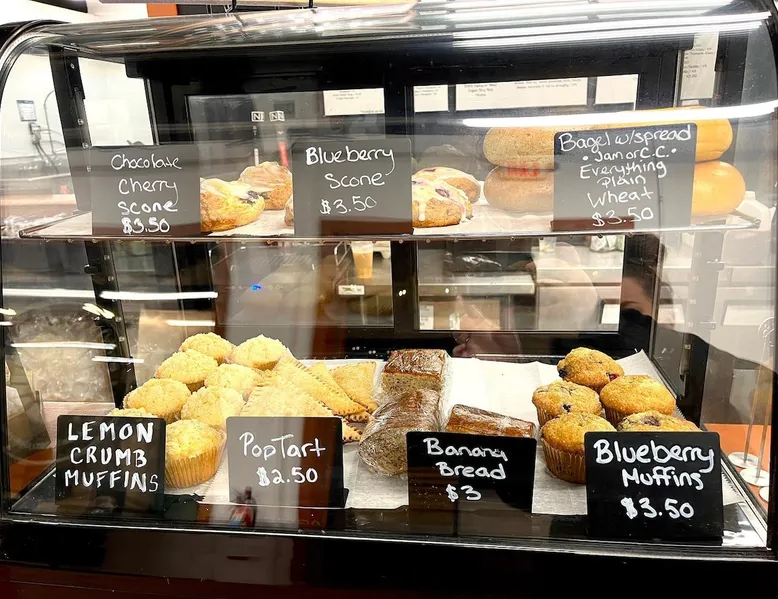 Chocolate
Cherry
Scone
$3.50
Blueberry
Scone
$3.50
Bagel w/spread
• Jam or C.C. •
Everything
Plain
Wheat
$3.50
LEMON
CRUMB
MUFFINS
PopTart
$2.50
Banana
Bread
$3
Blueberry
Muffins
$3.50